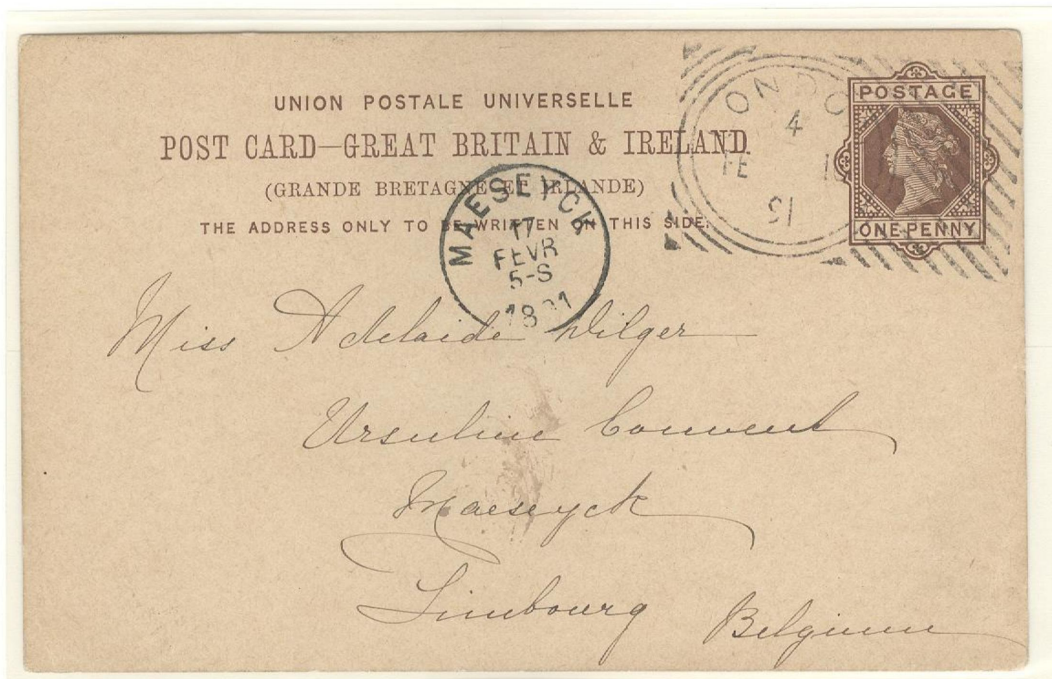 UNION POSTALE UNIVERSELLE
POST CARD—GREAT BRITAIN & IRELAND
(GRANDE BRETAGNE ET IRLANDE)
THE ADDRESS ONLY TO BE WRITTEN ON THIS SIDE.
POSTAGE
ONE PENNY
ONDO
4
FE
91
MAESEYCK
17
FEVR
5-S
Miss Adelaide Dilger
Ursuline Convent
Maeseyck
Limbourg Belgium